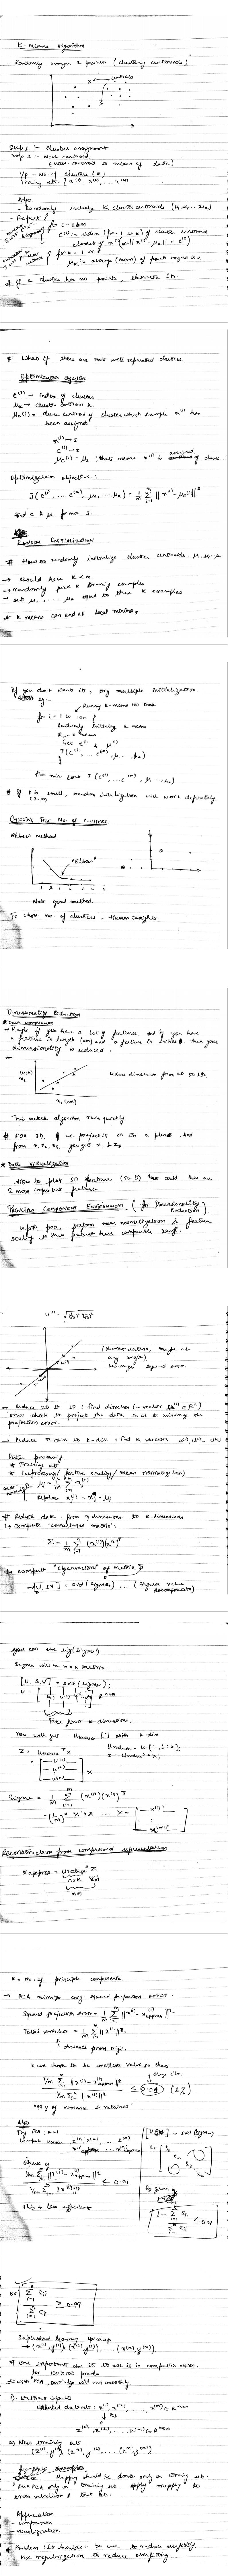 K-means algorithm
- Randomly assign 2 points (clustering centroids)
centroids
Step 1 :- cluster assignment
step 2 :- move centroid
(move centroid to mean of data)
I/P - No. of clusters (K)
Training set: { x(1), x(2), ... x(m)
Algo.
- Randomly K cluster centroids (μ1, μ2 ... μK)
- Repeat {
for i = 1 to m
c(i) := index (from 1 to K) of cluster centroid
closest of x(i)
for k = 1 to K
μk := average (mean) of points assigned to k
# If a cluster has no points, eliminate it.
# What if there are not well separated clusters.
Optimization objective
c(i) → index of cluster
μk → cluster centroid k
μc(i) = cluster centroid of cluster which example x(i) has
been assigned
x(i) → 5
c(i) → 5
μc(i) = μ5 : that means x(i) is assigned
Optimization objective :
J(c(1) ... c(m), μ1, ... μK) = 1/m Σ ||x(i) - μc(i)||²
find c & μ for min J.
Random Initialization
# How to randomly initialize cluster centroids μ1, μ2 ... μk
→ should have K < m
→ randomly pick K training examples
→ set μ1, ... μk equal to these K examples
# K means can end at local minima,
If you don't want it, try multiple initialization
eg -
for i = 1 to 100 {
Randomly initialize k means
Run k means
Get c(i) & μ(i)
J(c(1) ... c(m), μ1 ... μk)
}
Pick min cost J (c(1) ... c(m), μ1 ... μk)
# If k is small, random initialization will work definitely.
(2-10)
Choosing The No. of Clusters
Elbow method
"Elbow"
Not good method.
To chose no. of clusters, Human insight
Dimensionality Reduction
* Data compression
- Maybe if you have a lot of features, and if you have
a feature in length (cm) and a feature in inches, then your
dimensionality is reduced.
(inch)
x2
x1 (cm)
Reduce dimension from 2D to 1D.
This makes algorithm run quickly.
# FOR 3D, we project it on to a plane, and
from x1, x2, x3, you get z1 & z2.
* Data Visualization
How to plot 50 features (50-D)
2 most important features
Principle Component (for Dimensionality
Reduction).
Before pca, perform mean normalization & feature
scaling, so that features have comparable range.
(shortest distance, maybe at
any angle)
minimize squared error
→ Reduce 2D to 1D : find direction (- vector u(1) ∈ Rⁿ)
onto which to project the data so as to minimize the
projection error.
→ Reduce n-dim to k-dim : find k vectors u(1), u(2), u(k)
Data processing
* Training set
* Preprocessing (feature scaling / mean normalization)
μj = 1/m Σ xj(i)
Replace xj(i) = xj - μj
# Reduce data from n-dimensions to k-dimensions
↳ Compute "covariance matrix":
Σ = 1/m Σ (x(i))(x(i))ᵀ
↳ compute "eigenvectors" of matrix Σ
→ [U, S, V] = svd (Sigma) ... (singular value
decomposition)
you can use eig(sigma)
Sigma will be n×n matrix.
[U, S, V] = svd (Sigma);
Take first k dimensions.
You will get Ureduce [ ] with k-dim
Z = Ureduceᵀ x
Ureduce = U(:, 1:k);
z = Ureduce' * x;
Sigma = 1/m Σ (x(i)) (x(i))ᵀ
= (1/m) * X' * X
Reconstruction from compressed representation
xapprox = Ureduce Z
n×k
K - No. of principle components.
→ PCA minimize avg squared projection error :
Squared projection error = 1/m Σ ||x(i) - xapprox(i)||²
Total variation = 1/m Σ ||x(i)||²
distance from origin.
K we chose to be smallest value so that
1/m Σ ||x(i) - xapprox(i)||² / 1/m Σ ||x(i)||² ≤ 0.01 (1%)
"99% of variance is retained"
Algo
Try PCA : k=1
Compute Ureduce, z(1), z(2), ... z(m)
xapprox(1) ... xapprox(m)
Check if
1/m Σ ||x(i) - xapprox(i)||² / 1/m Σ ||x(i)||² ≤ 0.01
This is less efficient
[U, S, V] = svd (Sigma)
for given k
1 - Σ Sii / Σ Sii ≤ 0.01
or Σ Sii / Σ Sii ≥ 0.99
Supervised learning speedup
→ (x(1), y(1)) (x(2), y(2)), ... (x(m), y(m))
# One important use is to use is in computer vision.
for 100×100 pixels
with PCA, our algo will run smoothly.
1) - Extract inputs
Unlabeled datasets : x(1), x(2), ... x(m) ∈ R10000
↓ PCA
z(1), z(2), ... z(m) ∈ R1000
2) New training set
(z(1), y(1)) (z(2), y(2)), ... (z(m), y(m))
Mapping should be done only on training set.
Run PCA only on training set. Apply mapping to
cross validation & test set.
Application
- compression
- visualization
* Problem : It shouldn't be use to reduce overfitting
Use regularization to reduce overfitting.